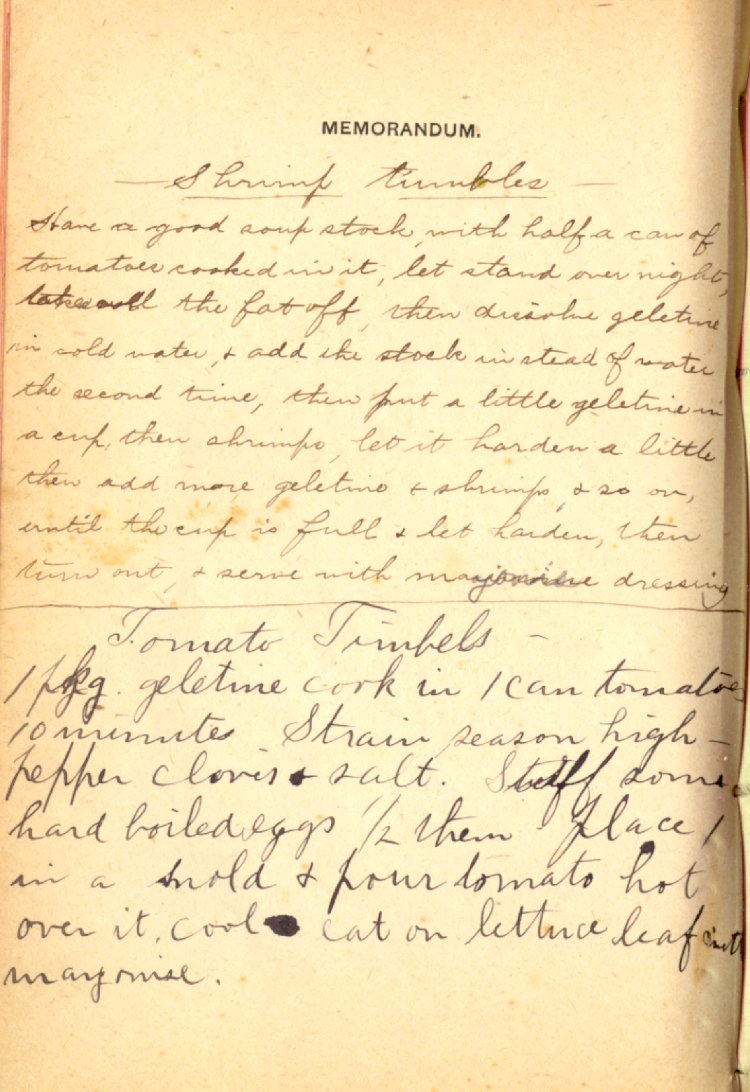 MEMORANDUM.
— Shrimp tumbles —
Have a good soup stock, with half a can of
tomatoes cooked in it, let stand over night,
take all the fat off, then dissolve geletine
in cold water, & add the stock instead of water
the second time, then put a little geletine in
a cup, then shrimps, let it harden a little
then add more geletine & shrimps, & so on,
until the cup is full & let harden, then
turn out, & serve with dressing
Tomato Timbels —
1 pkg. geletine cook in 1 can tomatoes
10 minutes Strain season high —
pepper clovis & salt. Stuff some
hard boiled eggs 1/2 them place 1
in a mold & pour tomato hot
over it. cool eat on lettuce leaf with
mayonise.